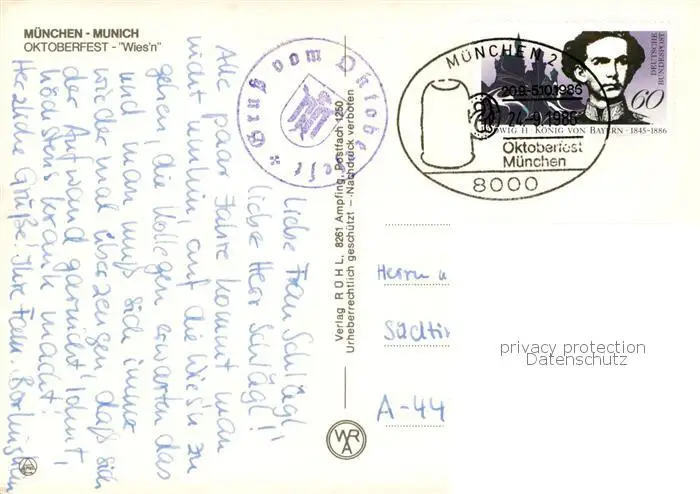 MÜNCHEN - MUNICH
OKTOBERFEST - "Wies'n"
Gruß vom Oktoberfeste
Liebe Frau Schlägl,
liebe Herr Schlägl!
Alle paar Jahre kommt man
nicht umhin, auf die Wies'n zu
gehen, die Kollegen erwarten das
und man muß sich immer
wieder mal überzeugen, daß sich
der Aufwand gar nicht lohnt,
höchstens krank macht!
Herzliche Grüße! Ihre Fam.
Verlag RÜHL, 8261 Ampfing, Postfach 1250
Urheberrechtlich geschützt - Nachdruck verboten
WRA
MÜNCHEN 2
20.9.-5.10.1986
24-9.1986
Oktoberfest
München
8000
DEUTSCHE
BUNDESPOST
60
LUDWIG II · KÖNIG VON BAYERN · 1845-1886
Herrn u
Südtir
A-44
privacy protection
Datenschutz